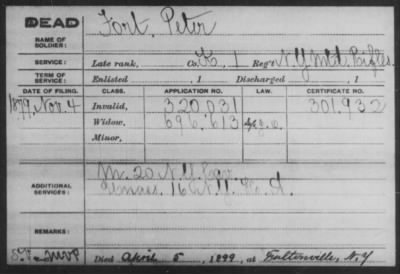 DEAD
NAME OF SOLDIER:
Fort, Peter
SERVICE:
Late rank, Co. K, 1 Reg't N.Y. Mtd. Rifles.
TERM OF SERVICE:
Enlisted , 1 Discharged , 1
DATE OF FILING. CLASS. APPLICATION NO. LAW. CERTIFICATE NO.
1879, Nov. 4 Invalid, 320,031 301.932
Widow, 696.613
Minor,
ADDITIONAL SERVICES:
M. 20 N.Y. Cav.
Unas. 16 N.Y. H. A.
REMARKS:
Died April 5, 1899, at Fultonville, N.Y